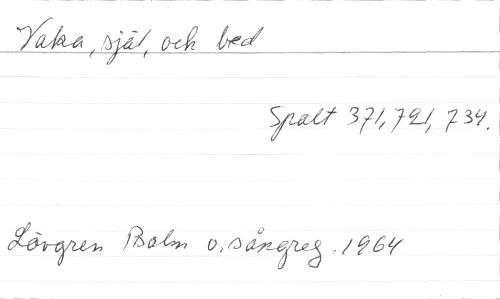 Vaka, själ, och bed
Spalt 371, 721, 734.
Lövgren Psalm o. sångreg. 1964